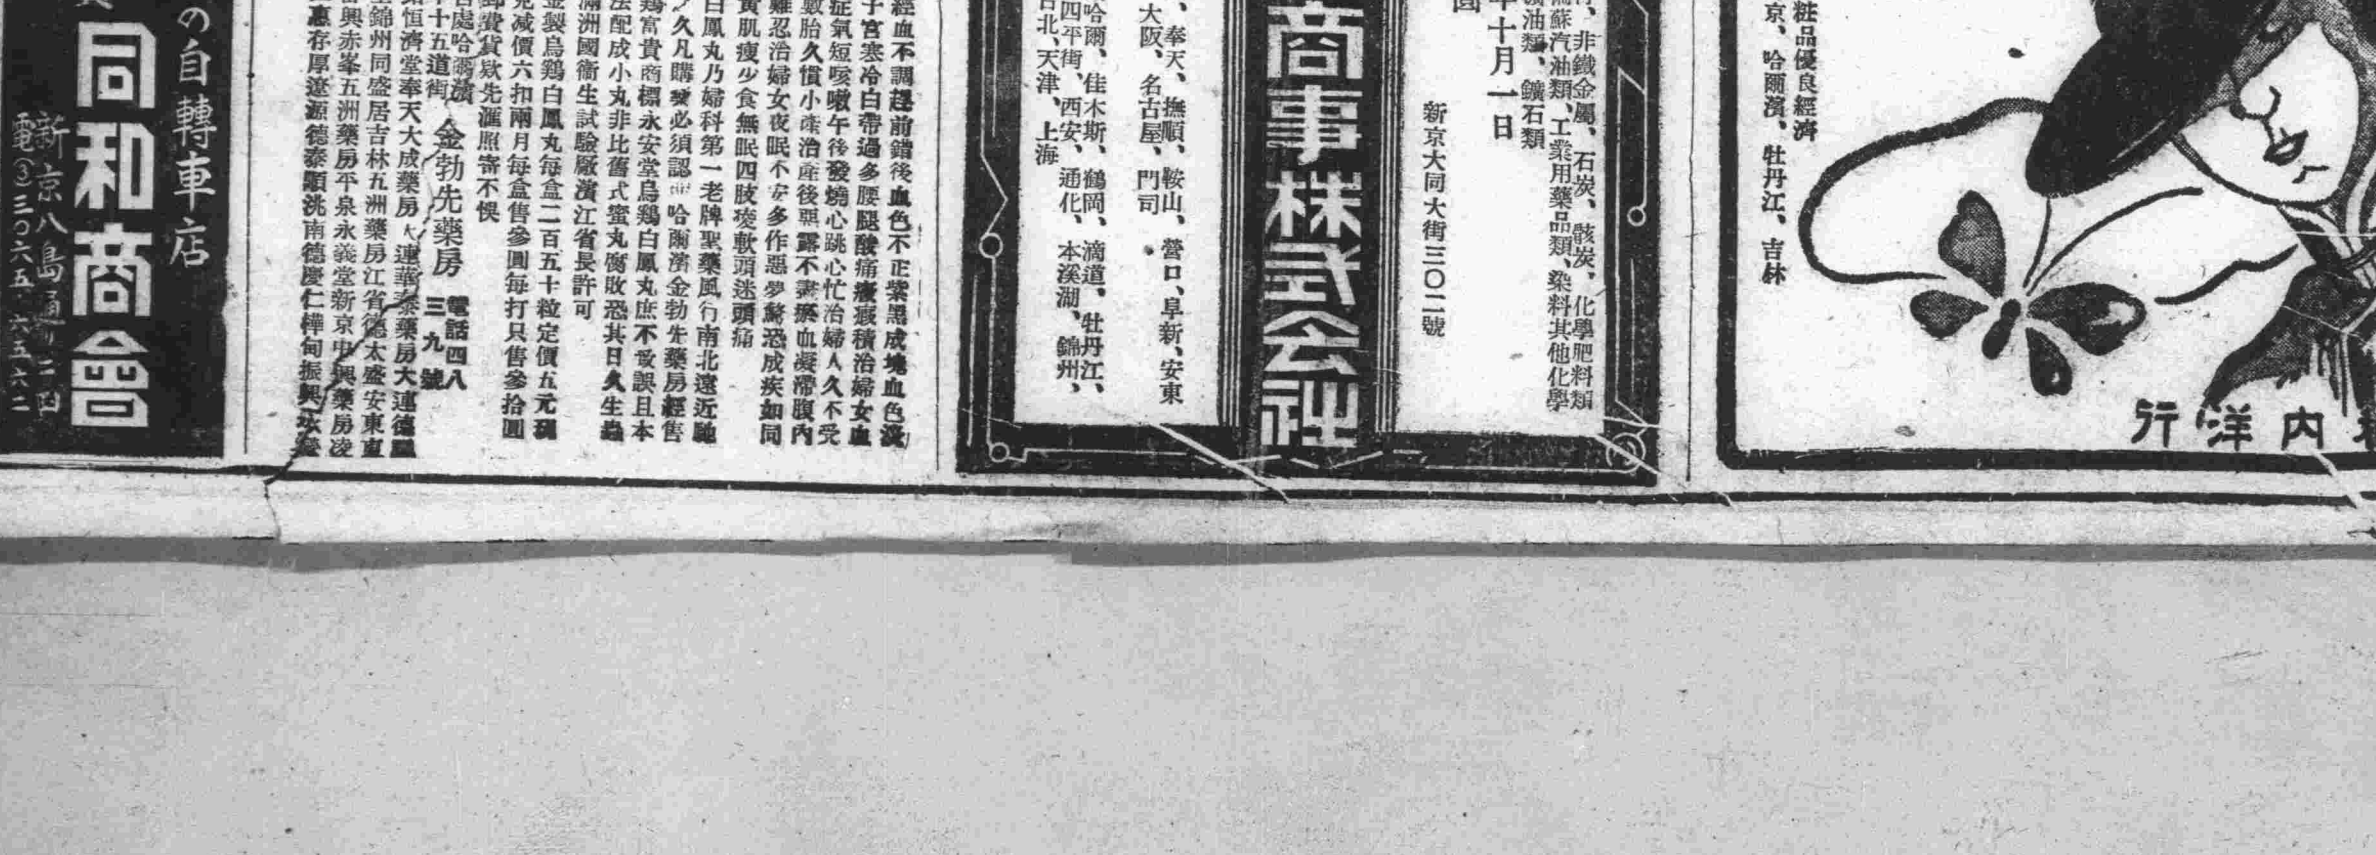 粧品優良經濟
京、哈爾濱、牡丹江、吉林
內洋行
非鐵金屬、石炭、骸炭、化學肥料類
蘇汽油類、工業用藥品類、染料其他化學
油類、鑛石類
年十月一日
新京大同大街三〇二號
商事株式会社
、奉天、撫順、鞍山、營口、阜新、安東
大阪、名古屋、門司
哈爾、佳木斯、鶴岡、滴道、牡丹江、
四平街、西安、通化、本溪湖、錦州、
台北、天津、上海
經血不調趕前錯後血色不正紫黑成塊血色淡
子宮寒冷白帶過多腰腿酸痛癥瘕積治婦女血
症氣短咳嗽午後發燒心跳心忙治婦人久不受
數胎久慣小產治產後惡露不盡瘀血凝滯腹內
難忍治婦女夜眠不安多作惡夢驚恐成疾如同
黃肌瘦少食無眠四肢痠軟頭迷頭痛
白鳳丸乃婦科第一老牌聖藥風行南北遠近馳
久凡購發必須認 哈爾濱金勃先藥房經售
鶏富貴商標永安堂烏鶏白鳳丸庶不致誤且本
法配成小丸非比舊式蜜丸腐敗恐其日久生蟲
滿洲國衞生試驗廠濱江省長許可
金製烏鶏白鳳丸每盒二百五十粒定價五元現
兌減價六扣兩月每盒售參圓每打只售參拾圓
郵費貨欵先滙照寄不悞
處哈爾濱 金勃先藥房 電話四八
十五道街 三九號
恒濟堂奉天大成藥房大連華泰藥房大連德
錦州同盛居吉林五洲藥房江省德太盛安東東
興赤峯五洲藥房平泉永義堂新京中興藥房凌
惠存厚遼源德泰顯洮南德慶仁樺甸振興
の自轉車店
同和商會
新京八島通り二四
電③三〇六五・六五六二